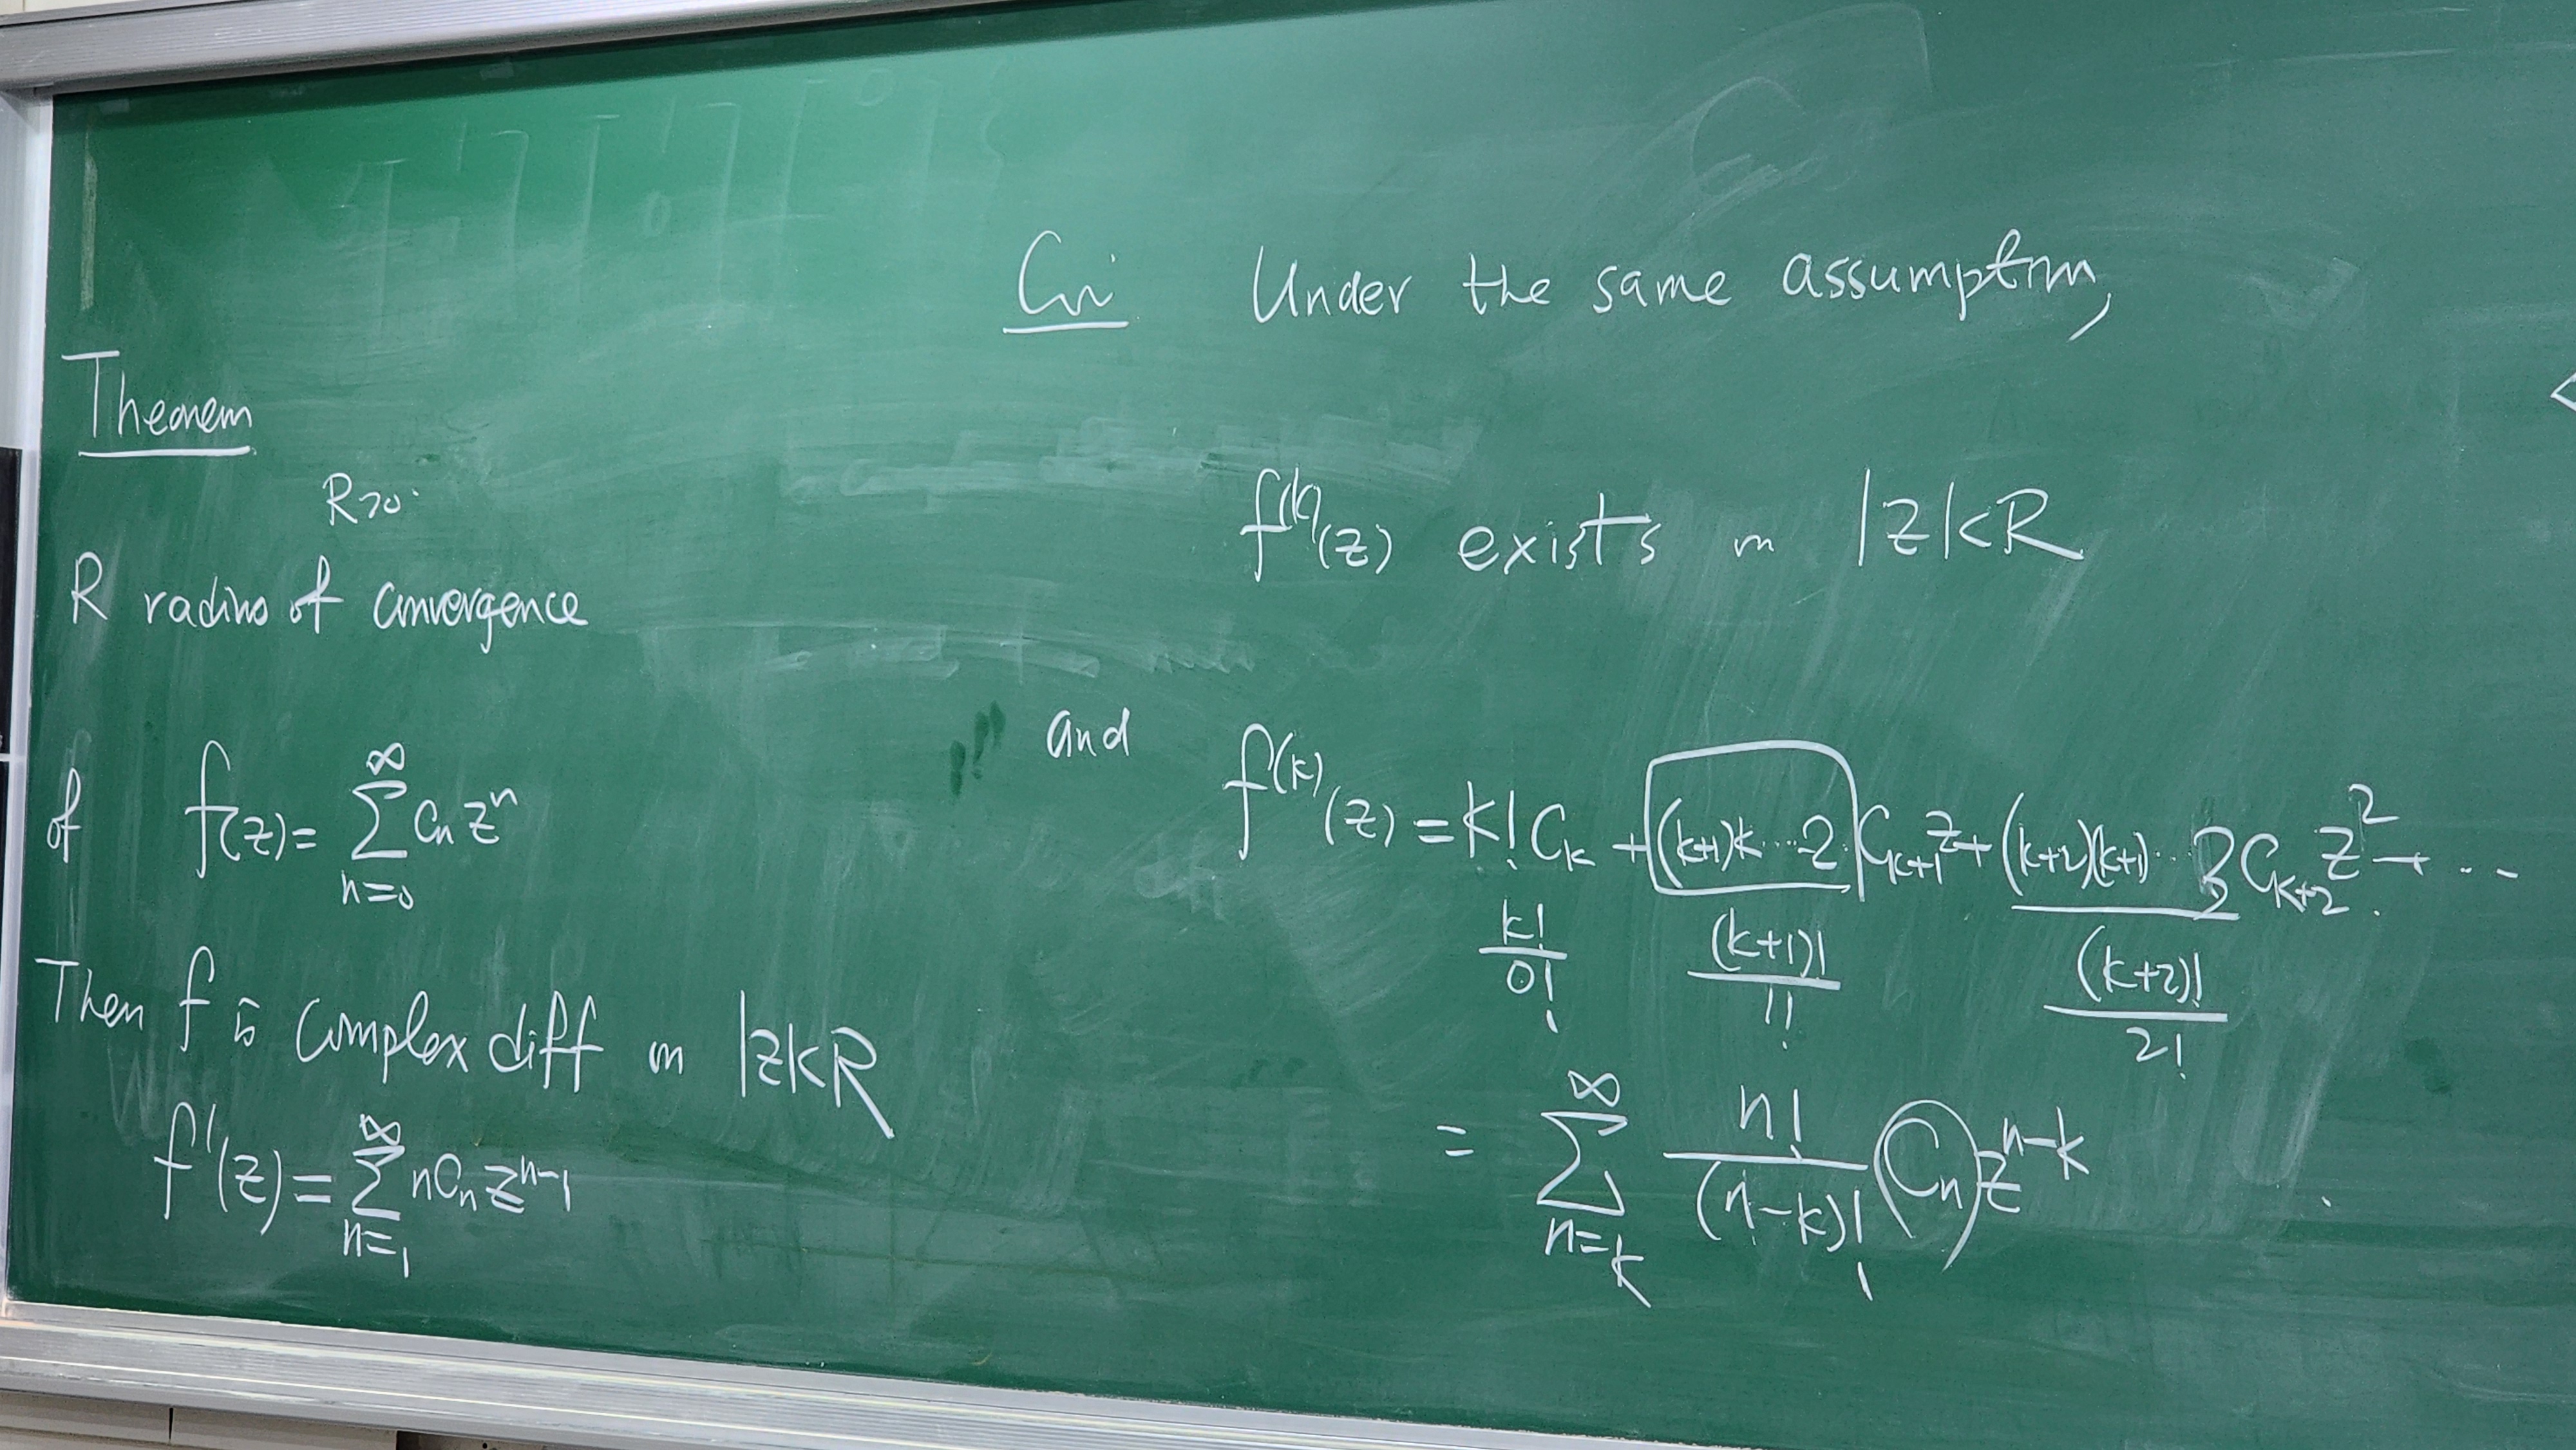 Theorem
R>0
R radius of convergence
of f(z) = ∑_{n=0}^{∞} c_n z^n
Then f is complex diff in |z|<R
f'(z) = ∑_{n=1}^{∞} n c_n z^{n-1}
Cor Under the same assumption,
f^{(k)}(z) exists in |z|<R
and f^{(k)}(z) = k! c_k + (k+1)k⋯2 c_{k+1} z + (k+2)(k+1)⋯3 c_{k+2} z^2 + ⋯
k!/0! (k+1)!/1! (k+2)!/2!
= ∑_{n=k}^{∞} n!/(n-k)! c_n z^{n-k}